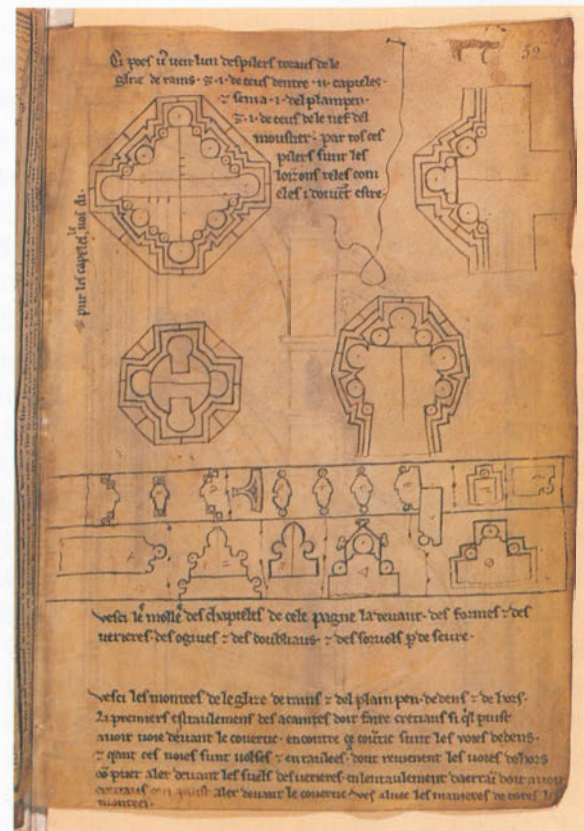 Ci poes ꝟ veir lun des pilers toraus de le
glize de rains · ⁊ · i · de ceus dentre · ii · capieles ·
⁊ sen i a · i · del plain pen ·
⁊ · i · de ceus de le nef del
moustier · par tos ces
pilers sunt les
loizons teles com
eles i doivēt estre ·
32
vesci le molle des chapieles de cele pagne la devant · des formes ⁊ des
verieres · des ogives ⁊ des doubliaus · ⁊ des sorvols p̄ de seure ·
vesci les montees de le glize de rains ⁊ del plain pen · dedens ⁊ de hors ·
Li premiers estaulemens des acaintes doit faire cretiaus si qil puist
avoir voie devant le covertic · encontre ce covertic sunt les voies dedens ·
⁊ qant ces voies sunt volses ⁊ entaulees · dont revienent les voies dehors
cō puet aler devant les suels des verieres · en lentaulement daerrai doit avoir
cretiaus con puist aler devant le covertic · ves aluec les manieres de totes les
montees ·